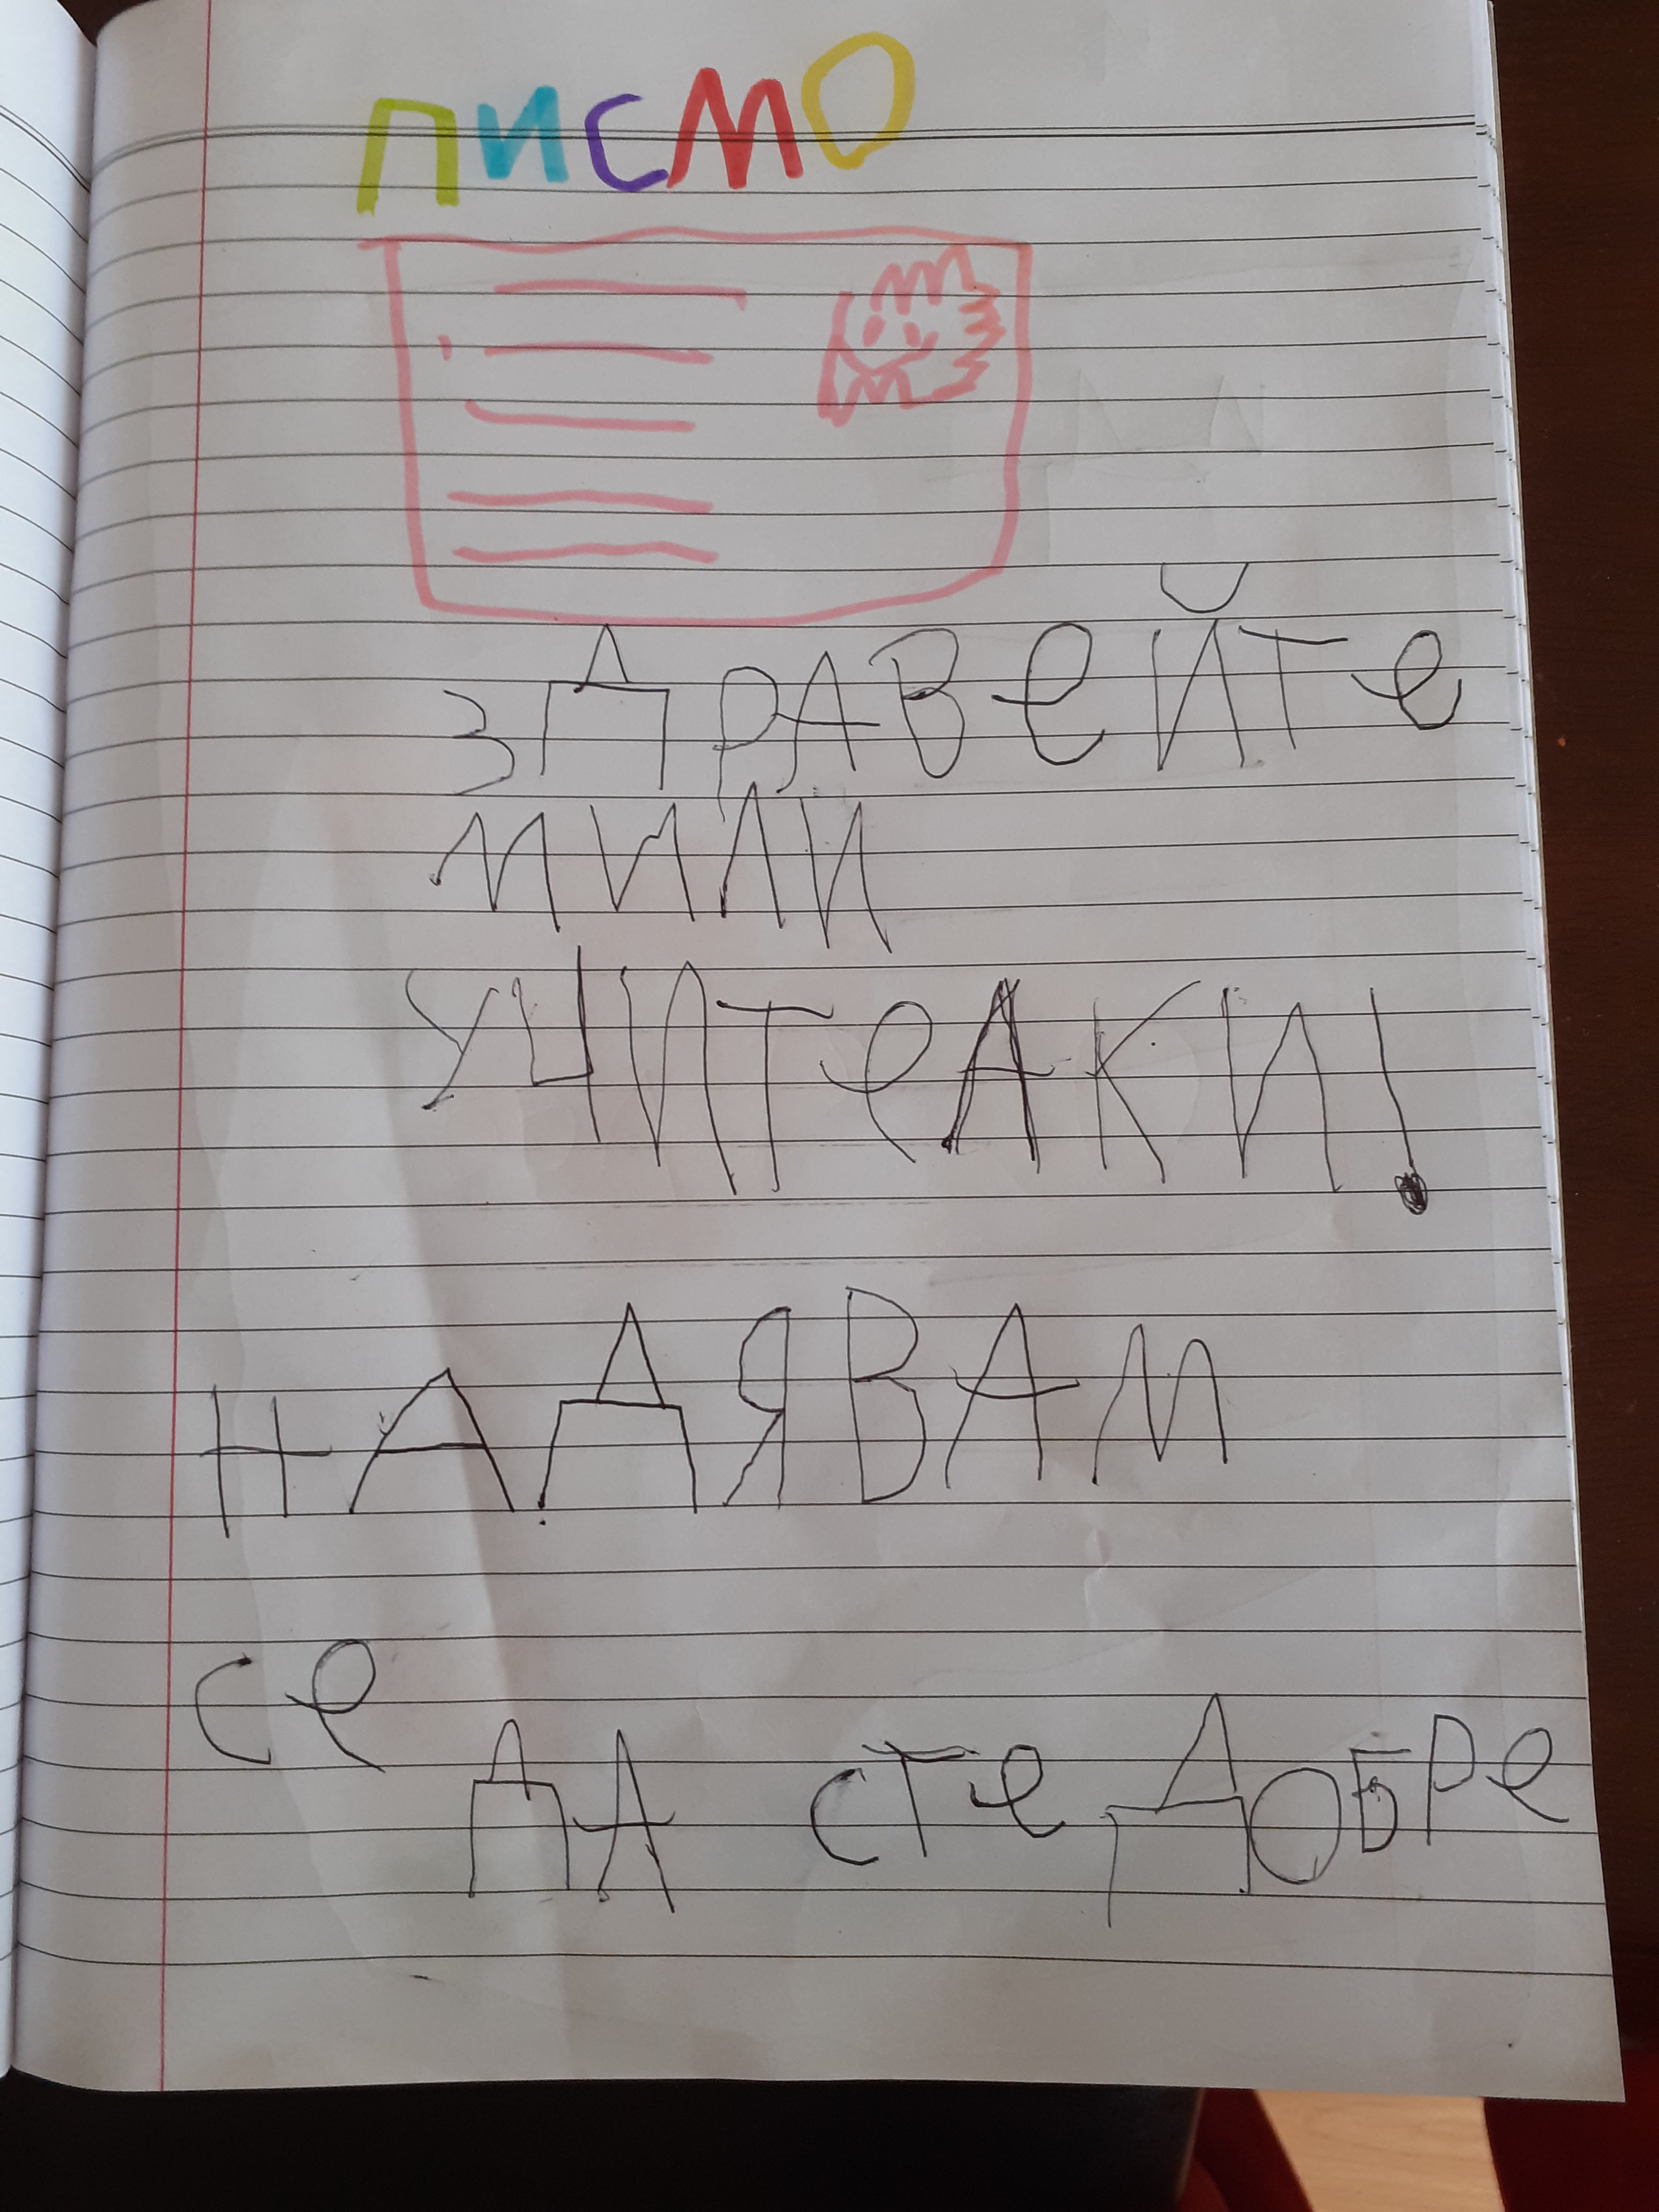 ПИСМО
ЗДРАВеЙТе
МИЛИ
УЧИТеАКИ!
НАДЯВАМ
Се
ДА СТе ДОБРе